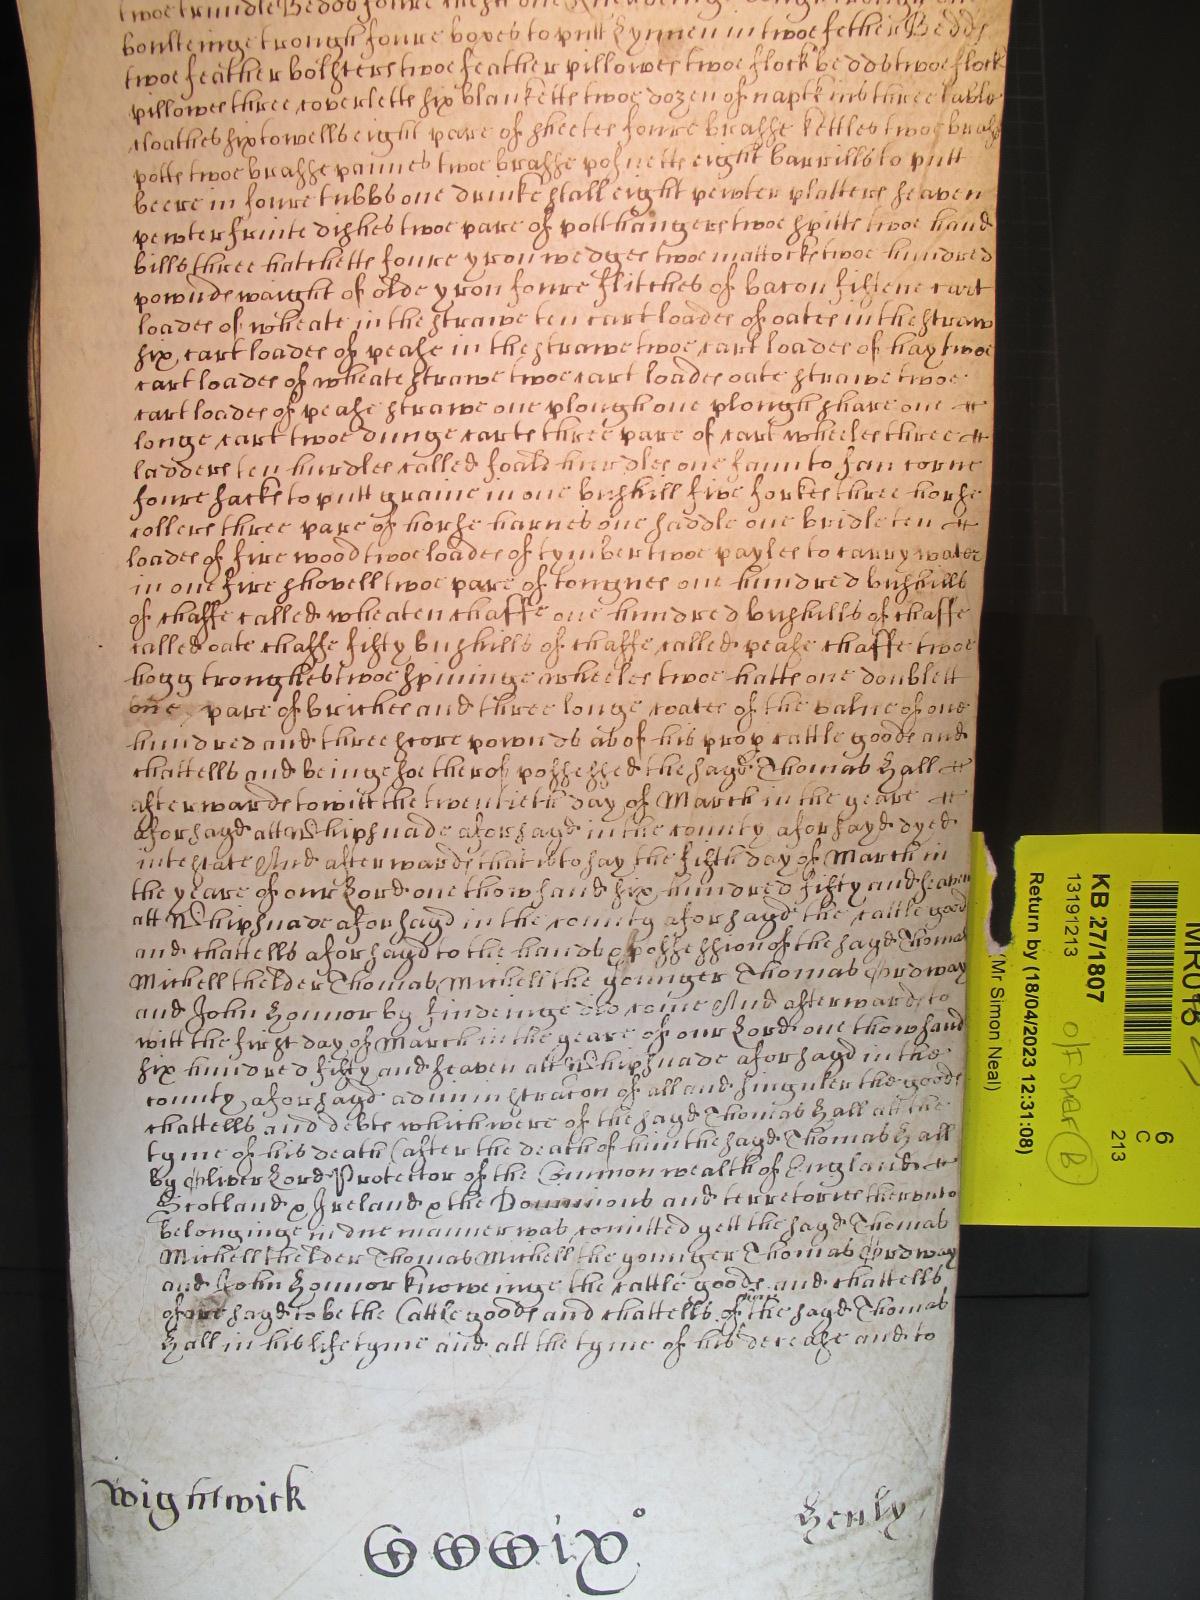 twoe trundle Bedds foure chests one Kneadeinge trough one
boulteinge trough foure boxes to putt Lynnen in twoe fether Bedds
twoe feather bolsters twoe feather pillowes twoe flock bedds twoe flock
pillowes three coverletts six blanketts twoe dozen of napkins three table
cloathes six towells eight pare of sheetes foure brasse kettles twoe brasse
potts twoe brasse pannes twoe brasse posnetts eight barrills to putt
beere in foure tubbs one drinke stall eight pewter platters seaven
pewter fruite dishes twoe pare of potthangers twoe spitts twoe hand
bills three hatchetts foure yron wedges twoe mattocks twoe hundred
pownds waight of olde yron foure flitches of bacon fiftene cart
loades of wheate in the strawe ten cart loades of oates in the straw
six cart loades of pease in the strawe twoe cart loades of hay twoe
cart loades of wheate strawe twoe cart loades oate strawe twoe
cart loades of pease strawe one plough one plough share one
longe cart twoe dunge carts three pare of cart wheeles three
ladders ten hurdles called foald hurdles one fann to fan corne
foure sacks to putt graine in one bushill five forkes three horse
collers three pare of horse harnes one saddle one bridle ten
loades of fire wood twoe loades of tymber twoe payles to carry water
in one fire shovell twoe pare of tongues one hundred bushills
of chaffe called wheaten chaffe one hundred bushills of chaffe
called oate chaffe fifty bushills of chaffe called pease chaffe twoe
hogg troughes twoe spininge wheeles twoe hatts one doublett
one pare of briches and three longe coates of the value of one
hundred and three score pownds as of his prop cattle goods and
chattells and beinge soe therof possessed the sayd Thomas Hall
afterwards to witt the twentieth day of March in the yeare
aforsayd att Whipsnade aforsayd in the county aforsayd dyed
intestate And afterwards that is to say the fifth day of March in
the yeare of oure Lord one thowsand six hundred fifty and seaven
att Whipsnade aforsayd in the county aforsayd the cattle goods
and chattells aforsayd to the hands & possession of the sayd Thomas
Michell thelder Thomas Michell the younger Thomas Ordway
and John Honnor by findeinge did come And afterwards to
witt the first day of March in the yeare of our Lord one thowsand
six hundred fifty and seaven att Whipsnade aforsayd in the
county aforsayd administracon of all and singuler the goods
chattells and debts which were of the sayd Thomas Hall att the
tyme of his death (after the death of him the sayd Thomas Hall
by Oliver Lord Protector of the Common wealth of England
Scotland & Ireland & the Dominions and terretories therunto
belonginge in due manner was comitted yett the sayd Thomas
Michell thelder Thomas Michell the younger Thomas Ordway
and John Honnor knoweinge the cattle goods and chattells
aforesayd to be the Cattle goods and chattells of the sayd Thomas
Hall in his life tyme and att the tyme of his decease and to
Wightwick
Henly
KB 27/1807
13191213
Return by (18/04/2023 12:31:08)
(Mr Simon Neal)
6
C
213
B